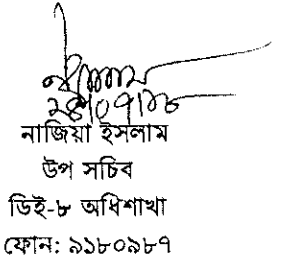 নাজিয়া ইসলাম
উপ সচিব
ডিই-৮ অধিশাখা
ফোন: ৯১৮০৯৮৭